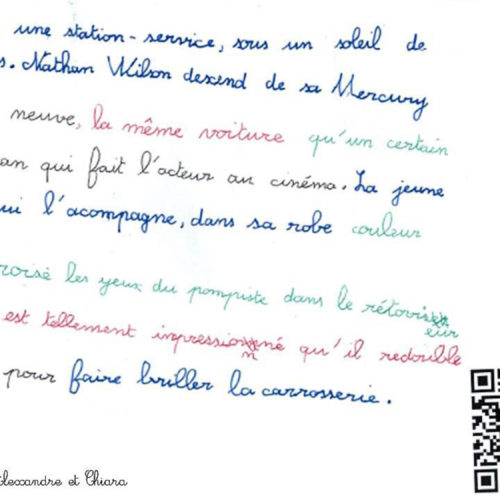 une station-service, sous un soleil de
s. Nathan Wilson descend de sa Mercury
neuve, la même voiture qu'un certain
an qui fait l'acteur au cinéma. La jeune
ui l'acompagne, dans sa robe couleur
roisé les yeux du pompiste dans le rétoviseur
est tellement impressionné qu'il redouble
pour faire briller la carrosserie.
Alexandre et Chiara